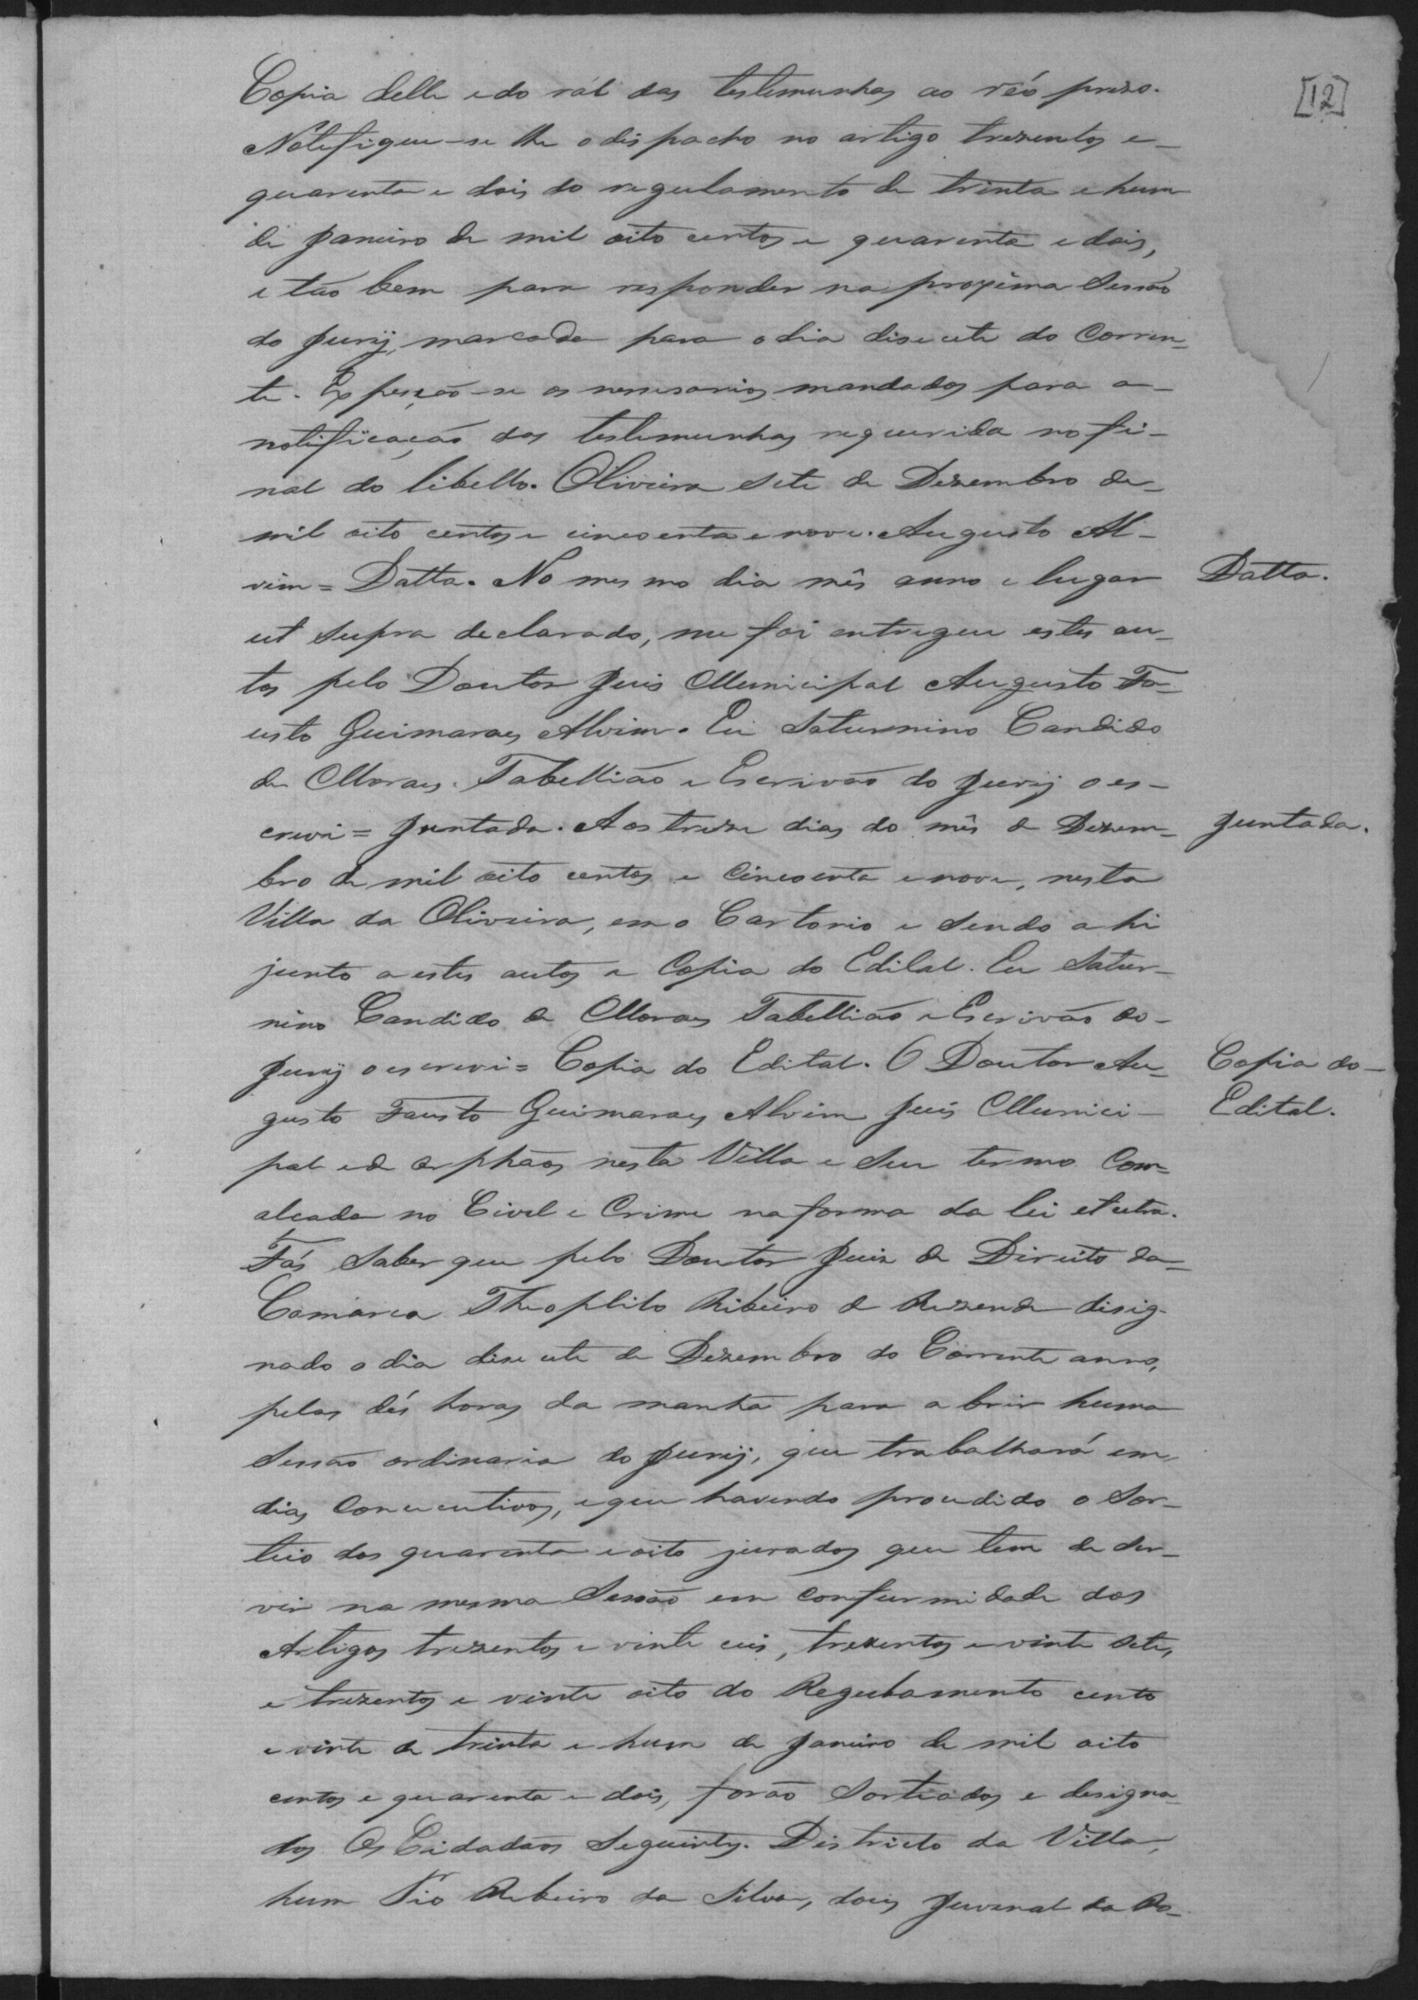 [12]
Copia delle e do ról das testemunhas ao réo prezo.
Notefique-se lhe o dispacho no artigo trezentos e
quarenta e dois do regulamento de trinta e hum
de Janeiro de mil oito centos e quarenta e dois,
e tão bem para responder na proxima Sessão
do Jurij, marcada para o dia disecete do Corren-
te. Expeção-se os nessesarios mandados para a
notificação das testemunhas requerida no fi-
nal do libello. Oliveira Sete de Dezembro de
mil oito centos e cincoenta e nove. Augusto Al-
vim = Datta. No mes mo dia mês anno e lugar
Datta.
ut Supra declarado, me foi entregue estes au-
tos pelo Doutor Juis Municipal Augusto Fa-
usto Guimaraes Alvim. Eu Saturnino Candido
de Moraes. Tabellião e Escrivão do Jurij o es-
crevi = Juntada. Aos treze dias do mês de Dezem-
Juntada.
bro de mil oito centos e cincoenta e nove, nesta
Villa da Oliveira, em o Cartorio e Sendo a hi
junto a estes autos a Copia do Edital. Eu Satur-
nino Candido de Moraes Tabellião e Escrivão do
Jurij o escrevi = Copia do Edital. O Doutor Au-
Copia do
gusto Fausto Guimaraes Alvim Juis Munici-
Edital.
pal e de orphãos nesta Villa e Seu termo Com
alçada no Civel e Crime na forma da lei et cetra.
Fás Saber que pelo Doutor Juiz de Direito da
Comarca Theophilo Ribeiro de Rezende disig-
nado o dia dise cete de Dezembro do Corrente anno,
pelas dés horas da manhã para a brir huma
Sessão ordinaria do Jurij, que trabalhará em
dias Concecutivos, e que havendo procedido o Sor-
teio dos quarenta e oito jurados que tem de Ser-
vir na mesma Sessão em confurmidade dos
Artigos trezentos e vinte ceis, trezentos e vinte Sete,
e trezentos e vinte oito do Regulamento cento
e vinte de trinta e hum de Janeiro de mil oito
centos e quarenta e dois, forão Sorteados e designa-
dos Os Cidadãos Seguintes. Districto da Villa,
hum Pio Ribeiro da Silva, dois Juvenal da Ro-